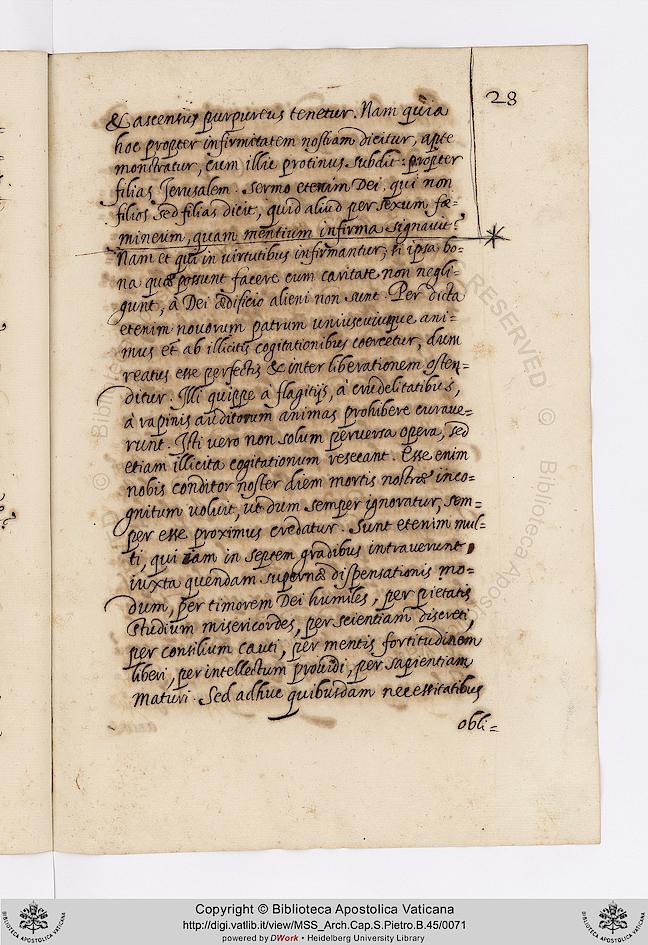 28
& ascensus purpureus tenetur. Nam quia
hoc propter infirmitatem nostram dicitur, aperte
monstratur, cum illic protinus subdit: propter
filias Jerusalem. Sermo etenim Dei, qui non
filios sed filias dicit, quid aliud per sexum fœ=
mineum, quam mentium infirma signavit?
Nam et qui in virtutibus infirmantur, si ipsa bo=
na quæ possunt facere cum caritate non negli=
gunt, à Dei ædificio alieni non sunt. Per dicta
etenim novorum patrum uniuscuiusque ani=
mus et ab illicitis cogitationibus coercetur, dum
reatus esse perfectis & inter liberationem osten=
ditur. Illi quippe à flagitijs, à crudelitatibus,
à rapinis auditorum animas prohibere curave=
runt. Isti vero non solum perversa opera, sed
etiam illicita cogitationum resecant. Esse enim
nobis conditor noster diem mortis nostræ inco=
gnitum voluit, ut dum semper ignoratur, sem=
per esse proximus credatur. Sunt etenim mul=
ti, qui iam in septem gradibus intraverunt
iuxta quendam supernæ dispensationis mo=
dum, per timorem Dei humiles, per pietatis
studium misericordes, per scientiam discreti,
per consilium cauti, per mentis fortitudinem
liberi, per intellectum providi, per sapientiam
maturi. Sed adhuc quibusdam necessitatibus
obli=
Copyright © Biblioteca Apostolica Vaticana
http://digi.vatlib.it/view/MSS_Arch.Cap.S.Pietro.B.45/0071
powered by DWork • Heidelberg University Library